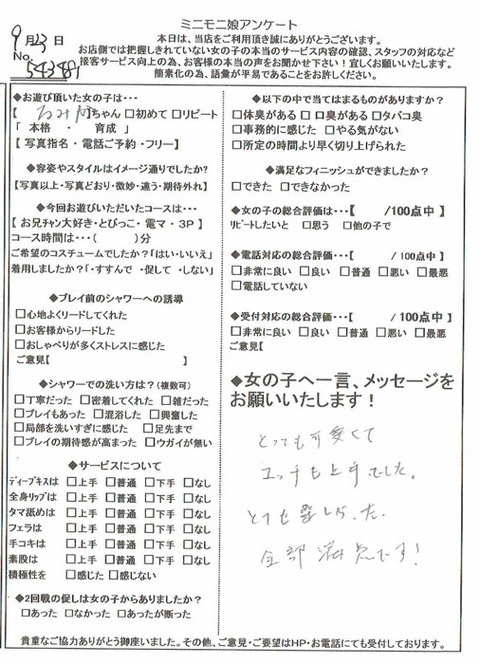 ミニモニ娘アンケート
9月23日
No.543481
本日は、当店をご利用頂き誠にありがとうございます。
お店側では把握しきれていない女の子の本当のサービス内容の確認、スタッフの対応など
接客サービス向上の為、お客様の本当の声をお聞かせ下さい！宜しくお願いいたします。
簡素化の為、語彙が平易であることをお許しください。
◆お遊び頂いた女の子は・・・
【 るみ 】ちゃん □初めて □リピート
「 本格 ・ 育成 」
【 写真指名・電話ご予約・フリー】
◆容姿やスタイルはイメージ通りでしたか?
【写真以上・写真どおり・微妙・違う・期待外れ】
◆今回お遊びいただいたコースは・・・
【 お兄チャン大好き・とびっこ・電マ・3P 】
コース時間は・・・( )分
ご希望のコスチュームでしたか?「はい・いいえ」
着用しましたか?「・すすんで ・促して ・しない」
◆プレイ前のシャワーへの誘導
□心地よくリードしてくれた
□お客様からリードした
□おしゃべりが多くストレスに感じた
ご意見【 】
◆シャワーでの洗い方は？(複数可)
□丁寧だった □密着してくれた □雑だった
□プレイもあった □混浴した □興奮した
□局部を洗いすぎに感じた □足先まで
□プレイの期待感が高まった □ウガイが無い
◆サービスについて
ディープキスは □上手 □普通 □下手 □なし
全身リップは □上手 □普通 □下手 □なし
タマ舐めは □上手 □普通 □下手 □なし
フェラは □上手 □普通 □下手 □なし
手コキは □上手 □普通 □下手 □なし
素股は □上手 □普通 □下手 □なし
積極性を □感じた □感じない
◆2回戦の促しは女の子からありましたか?
□あった □なかった □あったが断った
◆以下の中で当てはまるものがありますか？
□体臭がある □口臭がある □タバコ臭
□事務的に感じた □やる気がない
□所定の時間より早く切り上げられた
◆満足なフィニッシュができましたか？
□できた □できなかった
◆女の子の総合評価は・・・【 /100点中】
リピートしたいと □思う □他の子で
◆電話対応の総合評価・・・【 /100点中】
□非常に良い □良い □普通 □悪い □最悪
□電話していない
◆受付対応の総合評価・・・【 /100点中】
□非常に良い □良い □普通 □悪い □最悪
ご意見【
◆女の子へ一言、メッセージを
お願いいたします！
とっても可愛くて
エッチも上手でした。
とても楽しかった
全部満点です！
貴重なご協力ありがとう御座いました。その他、ご意見・ご要望はHP・お電話にても受付しております。